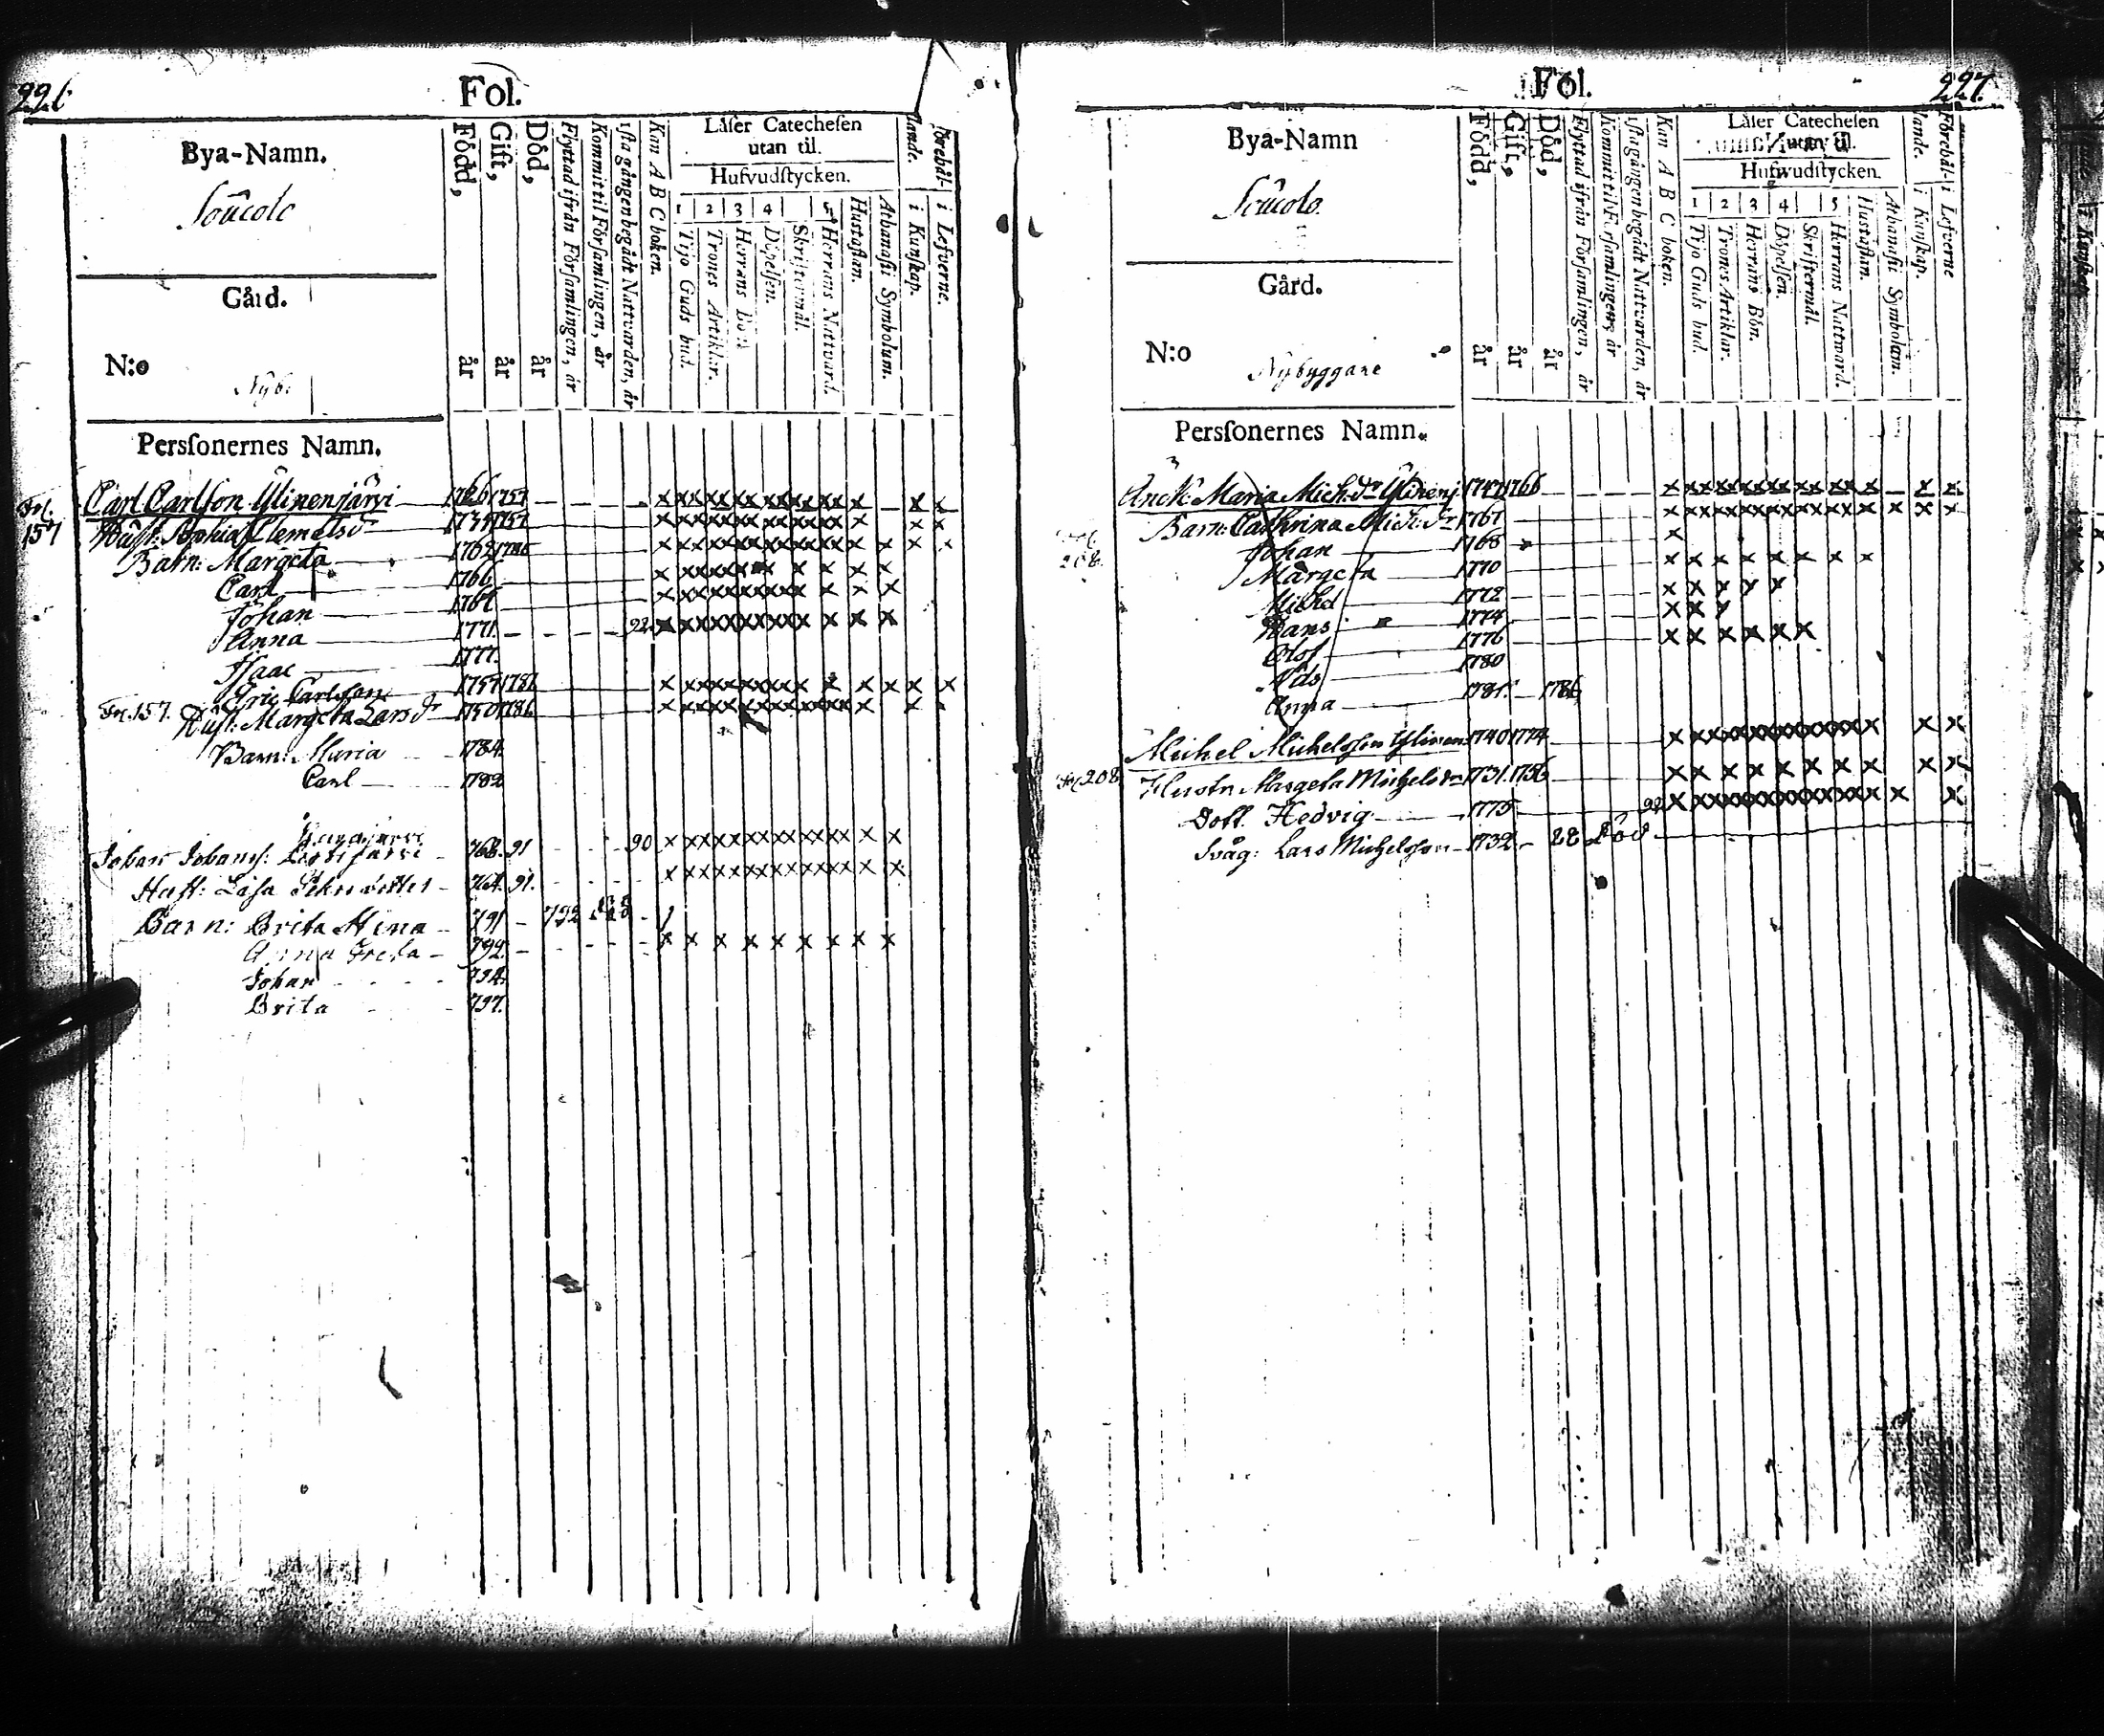 226
Fol.
Bya-Namn.
Soucolo
Gård.
N:o
Nyb:
Persſonernes Namn.
Född, år
Gift, år
Död, år
Flyttad ifrån Förſamlingen, år
Kommit til Förſamlingen, år
iſta gången begådt Nattvarden, år
Kan A B C boken.
Läſer Catecheſen
utan til.
Hufvudſtycken.
1 2 3 4 5
Tijo Guds bud.
Trones Artiklar.
Herrans Bön
Döpelſen.
Skriftermål.
Herrans Nattvard.
Huſtaflan.
Athanaſii Symbolum.
i Kunſkap.
i Lefverne.
Fol.
157
Carl Carlſon Ylinenjärvi 1726 1757
Huſt: Sophia Clemetsdr 1757
Barn: Margeta 1762 1786
Carl 1766
Johan
Anna 1771 92
Iſaac 1777
Eric Carlsſon 1757 1786
Fol. 157. Huſt: Margeta Larsdr 1750 1786
Barn: Maria 1784
Carl 1782
Johan Johansſ: 768. 91 90
Huſt: Lisa 764. 91.
Barn: Brita Stina 791 792
Anna Greta 792.
Johan 794.
Brita 797.
Fol. 227.
Bya-Namn
Soucolo.
Gård.
N:o
Nybyggare
Persſonernes Namn.
Född, år
Gift, år
Död, år
Flyttad ifrån Förſamlingen, år
Kommit til Förſamlingen, år
iſta gången begådt Nattvarden, år
Kan A B C boken.
Läſer Catecheſen
utan til.
Hufwudſtycken.
1 2 3 4 5
Tijo Guds bud.
Trones Artiklar.
Herrans Bön.
Döpelſen.
Skriftermål.
Herrans Nattward.
Huſtaflan.
Athanaſii Symbolum.
i Kunſkap.
i Lefverne
Änck: Maria Mich:dr Ylinenj 1766
Barn: Cathrina Mich:dr 1767
208
Johan 1768
Margeta 1770
Michel 1772
Hans 1774
Olof 1776
Nils 1780
Anna 1781 1786
Michel Michelsſon Ylinen 1740 1774
Fol. 208 Huſtr: Margeta Michelsdr 1731. 1756
Dott. Hedvig 1775 92
Svåg: Lars Michelsſon 1732 Död